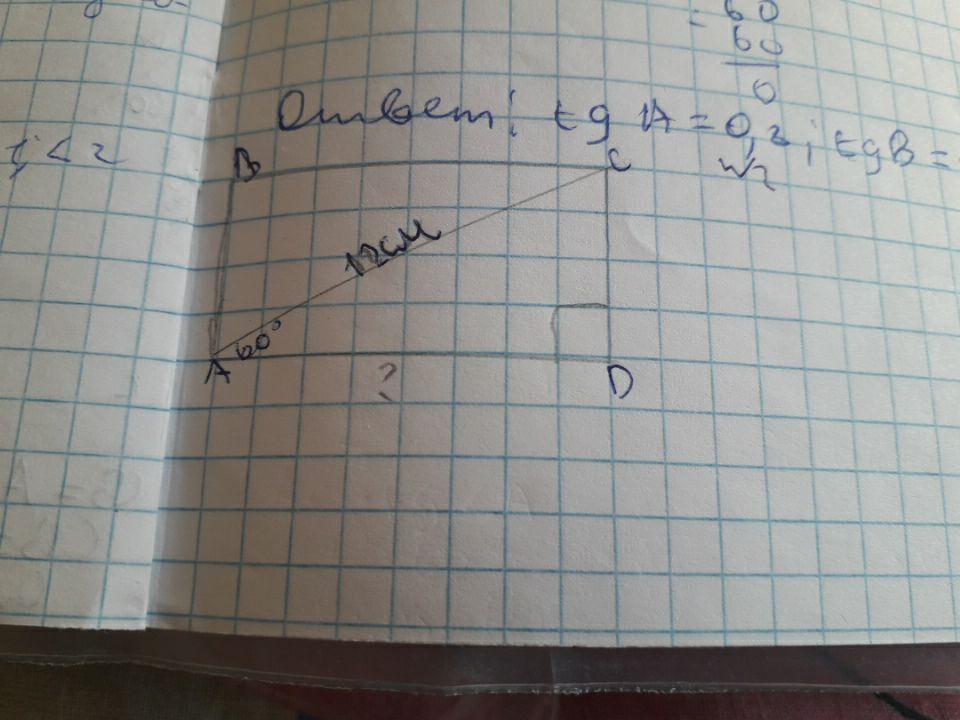 60
60
0
Ответ: tg A = 0,2; tg B =
√2
< 2
B
C
12см
60°
A
?
D